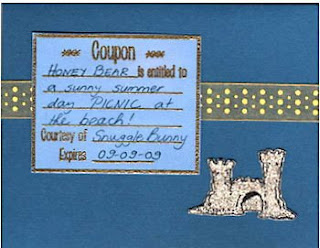 Coupon
HONEY BEAR is entitled to
a sunny summer
day PICNIC at
the beach!
Courtesy of Snuggle Bunny
Expires 09-09-09